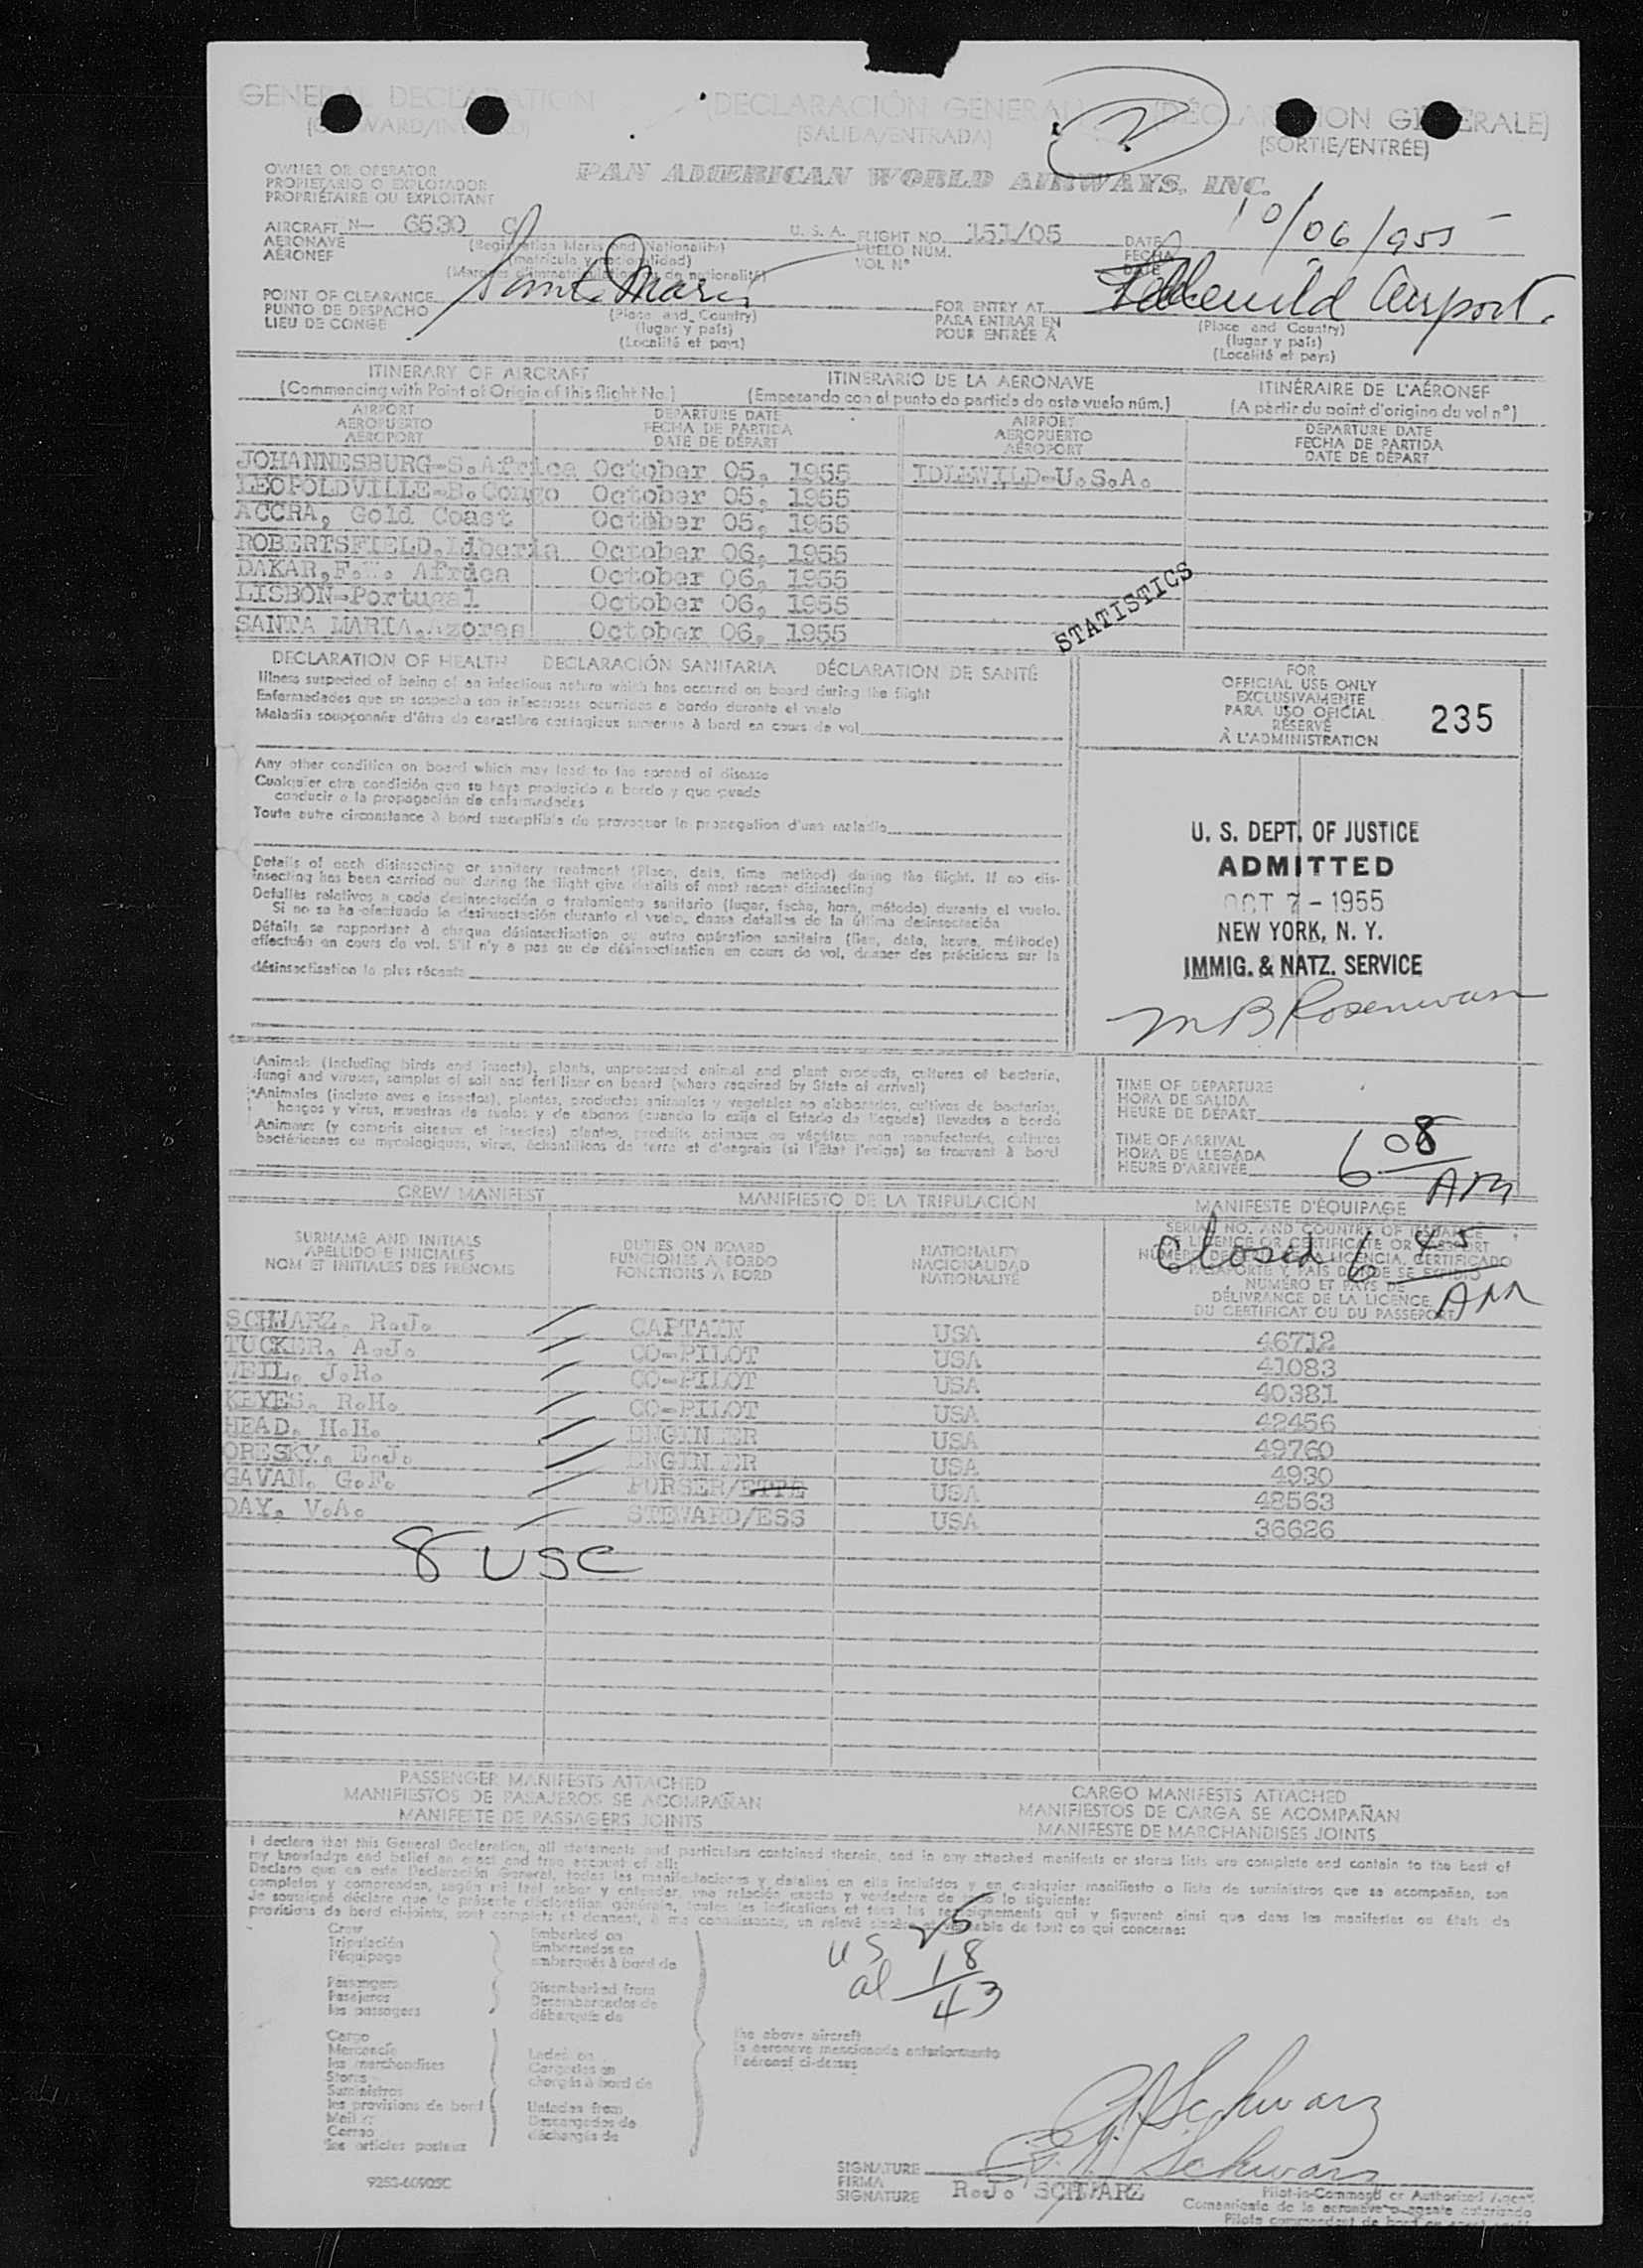 GENERAL DECLARATION (DECLARACIÓN GENERAL) (DÉCLARATION GÉNÉRALE)
(OUTWARD/INWARD) (SALIDA/ENTRADA) (SORTIE/ENTRÉE)
2
OWNER OR OPERATOR
PROPIETARIO O EXPLOTADOR
PROPRIÉTAIRE OU EXPLOITANT
PAN AMERICAN WORLD AIRWAYS, INC.
AIRCRAFT N- 6530 C U. S. A. FLIGHT NO. 151/05 DATE 10/06/955
AERONAVE (Registration Marks and Nationality) VUELO NÚM. FECHA
AÉRONEF (matrícula y nacionalidad) VOL N° DATE
(Marques d'immatriculation et de nationalité)
POINT OF CLEARANCE Santa Maria FOR ENTRY AT Idlewild Airport.
PUNTO DE DESPACHO (Place and Country) PARA ENTRAR EN (Place and Country)
LIEU DE CONGE (lugar y país) POUR ENTRÉE À (lugar y país)
(Localité et pays) (Localité et pays)
ITINERARY OF AIRCRAFT ITINERARIO DE LA AERONAVE ITINÉRAIRE DE L'AÉRONEF
(Commencing with Point of Origin of this flight No.) (Empezando con el punto de partida de este vuelo núm.) (A pértir du point d'origine du vol n°)
AIRPORT DEPARTURE DATE AIRPORT DEPARTURE DATE
AEROPUERTO FECHA DE PARTIDA AEROPUERTO FECHA DE PARTIDA
AÉROPORT DATE DE DÉPART AÉROPORT DATE DE DÉPART
JOHANNESBURG-S.Africa October 05, 1955 IDLEWILD-U.S.A.
LEOPOLDVILLE-B.Congo October 05, 1955
ACCRA, Gold Coast October 05, 1955
ROBERTSFIELD,Liberia October 06, 1955
DAKAR,F.W. Africa October 06, 1955
LISBON-Portugal October 06, 1955
SANTA MARIA,Azores October 06, 1955
STATISTICS
DECLARATION OF HEALTH DECLARACIÓN SANITARIA DÉCLARATION DE SANTÉ
Illness suspected of being of an infectious nature which has occurred on board during the flight
Enfermedades que se sospecha son infecciosas ocurridas a bordo durante el vuelo
Maladie soupçonnée d'être de caractère contagieux survenue à bord en cours de vol
FOR
OFFICIAL USE ONLY
EXCLUSIVAMENTE
PARA USO OFICIAL
RÉSERVÉ
À L'ADMINISTRATION
235
Any other condition on board which may lead to the spread of disease
Cualquier otra condición que se haya producido a bordo y que puede
conducir a la propagación de enfermedades
Toute autre circonstance à bord susceptible de provoquer la propagation d'une maladie
Details of each disinsecting or sanitary treatment (Place, date, time method) during the flight. If no dis-
insecting has been carried out during the flight give details of most recent disinsecting
Detalles relativos a cada desinsectación o tratamiento sanitario (lugar, fecha, hora, método) durante el vuelo.
Si no se ha efectuado la desinsectación durante el vuelo, dense detalles de la última desinsectación
Détails se rapportant à chaque désinsectisation ou autre opération sanitaire (lieu, date, heure, méthode)
effectuée en cours de vol. S'il n'y a pas eu de désinsectisation en cours de vol, donner des précisions sur la
désinsectisation la plus récente
U. S. DEPT. OF JUSTICE
ADMITTED
OCT 7 - 1955
NEW YORK, N. Y.
IMMIG. & NATZ. SERVICE
Animals (including birds and insects), plants, unprocessed animal and plant products, cultures of bacteria,
fungi and viruses, samples of soil and fertilizer on board (where required by State of arrival)
Animales (incluso aves e insectos), plantas, productos animales y vegetales no elaborados, cultivos de bacterias,
hongos y virus, muestras de suelos y de abonos (cuando lo exija el Estado de llegada) llevados a bordo
Animaux (y compris oiseaux et insectes) plantes, produits animaux ou végétaux non manufacturés, cultures
bactériennes ou mycologiques, virus, échantillons de terre et d'engrais (si l'État l'exige) se trouvant à bord
TIME OF DEPARTURE
HORA DE SALIDA
HEURE DE DÉPART
TIME OF ARRIVAL
HORA DE LLEGADA
HEURE D'ARRIVÉE
6 08 AM
CREW MANIFEST MANIFIESTO DE LA TRIPULACIÓN MANIFESTE D'ÉQUIPAGE
Closed 6 45 AM
SURNAME AND INITIALS DUTIES ON BOARD NATIONALITY
APELLIDO E INICIALES FUNCIONES A BORDO NACIONALIDAD
NOM ET INITIALES DES PRÉNOMS FONCTIONS A BORD NATIONALITÉ
SERIAL NO. AND COUNTRY OF ISSUANCE
NUMÉRO ET PAYS DE
DÉLIVRANCE DE LA LICENCE
DU CERTIFICAT OU DU PASSEPORT
SCHWARZ, R.J. CAPTAIN USA 46712
TUCKER, A.J. CO-PILOT USA 41083
WEIL, J.R. CO-PILOT USA 40381
KEYES, R.H. CO-PILOT USA 42456
HEAD, H.H. ENGINEER USA 49760
ORESKY, E.J. ENGINEER USA 4930
GAVAN, G.F. PURSER/ USA 48563
DAY, V.A. STEWARD/ESS USA 36626
8 USC
PASSENGER MANIFESTS ATTACHED CARGO MANIFESTS ATTACHED
MANIFIESTOS DE PASAJEROS SE ACOMPAÑAN MANIFIESTOS DE CARGA SE ACOMPAÑAN
MANIFESTE DE PASSAGERS JOINTS MANIFESTE DE MARCHANDISES JOINTS
I declare that this General Declaration, all statements and particulars contained therein, and in any attached manifests or stores lists are complete and contain to the best of
my knowledge and belief an exact and true account of all:
Declaro que en esta Declaración General, todas las manifestaciones y detalles en ella incluidos y en cualquier manifiesto o lista de suministros que se acompañan, son
completos y comprenden, según mi leal saber y entender, una relación exacta y verdadera de todo lo siguiente:
Je soussigné déclare que la présente déclaration générale, toutes les indications et tous les renseignements qui y figurent ainsi que dans les manifestes ou états de
provisions de bord ci-joints, sont complets et donnent, à ma connaissance, un relevé sincère et véritable de tout ce qui concerne:
Crew Embarked on
Tripulación Embarcados en
l'équipage embarqués à bord de
Passengers Disembarked from
Pasajeros Desembarcados de
les passagers débarqués de
US 25
al 18
43
Cargo
Mercancía
les marchandises
Stores
Suministros
les provisions de bord
Mail
Correo
les articles postaux
Laden on
Cargados en
chargés à bord de
Unladen from
Descargados de
déchargés de
the above aircraft
la aeronave mencionada anteriormente
l'aéronef ci-dessus
R.J. Schwarz
R.J. Schwarz
SIGNATURE
FIRMA
SIGNATURE
R.J. SCHWARZ
Pilot-in-Command or Authorized Agent
Comandante de la aeronave o agente autorizado
Pilote commandant de bord